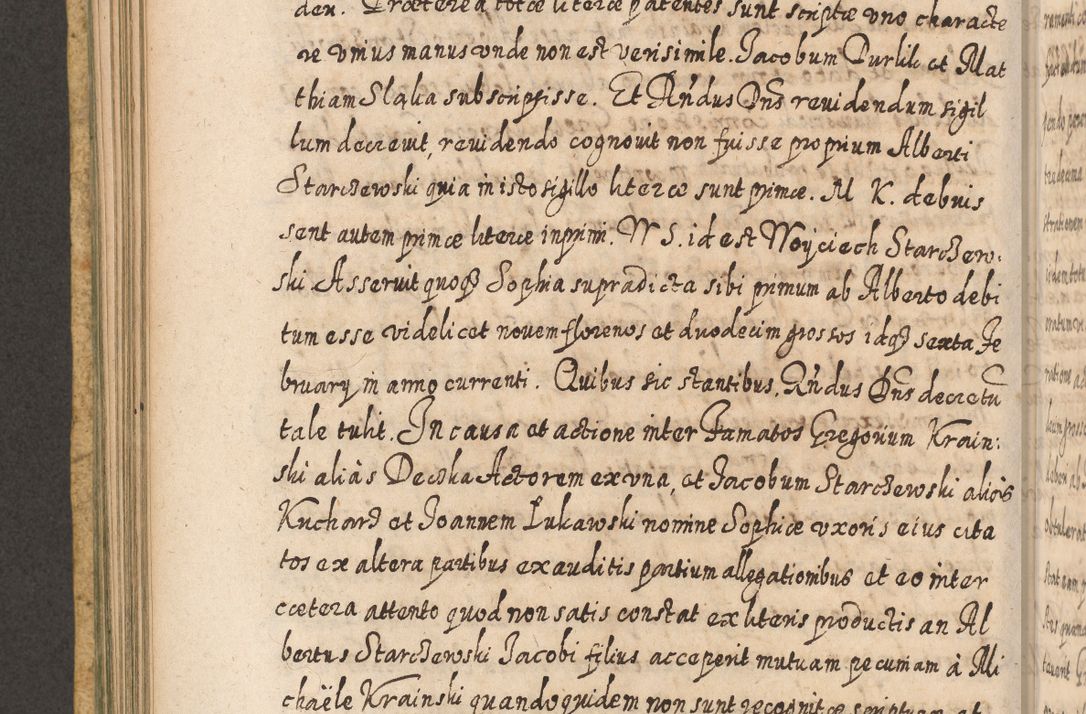 den. Præterea totæ literæ patentes sunt scriptæ vno characte
re vnius manus vnde non est verisimile. Jacobum Durlik et Mat
thiam Sląka subscripsisse. Et Rńdus Dńs reuidendum sigil
lum decreuit, reuidendo cognouit non fuisse proprium Alberti
Starczewski quia in isto sigillo literæ sunt primæ. M K. debuis
sent autem primæ literæ inprimi. W S. id est Woyciech Starczew.
ski Asseruit quoqȝ Sophia supradicta sibi primum ab Alberto debi
tum esse videlicet nouem florenos et duodecim grossos idqȝ sexta Fe
bruary in anno currenti. Quibus sic stantibus. Rńdus Dńs decretū
tale tulit. In causa et actione inter Famatos Gregorium Krain:
ski aliàs Deczka Actorem ex vna, et Jacobum Starczewski aliàs
Kucharz et Joannem Łukawski nomine Sophiæ vxoris eius cita
tos ex altera partibus exauditis partium allegationibus et eo inter
cætera attento quod non satis constat ex literis productis an Al
bertus Starczewski Jacobi filius acceperit mutuam pecuniam à Mi
chaële Krainski quandoquidem non sunt recognitæ